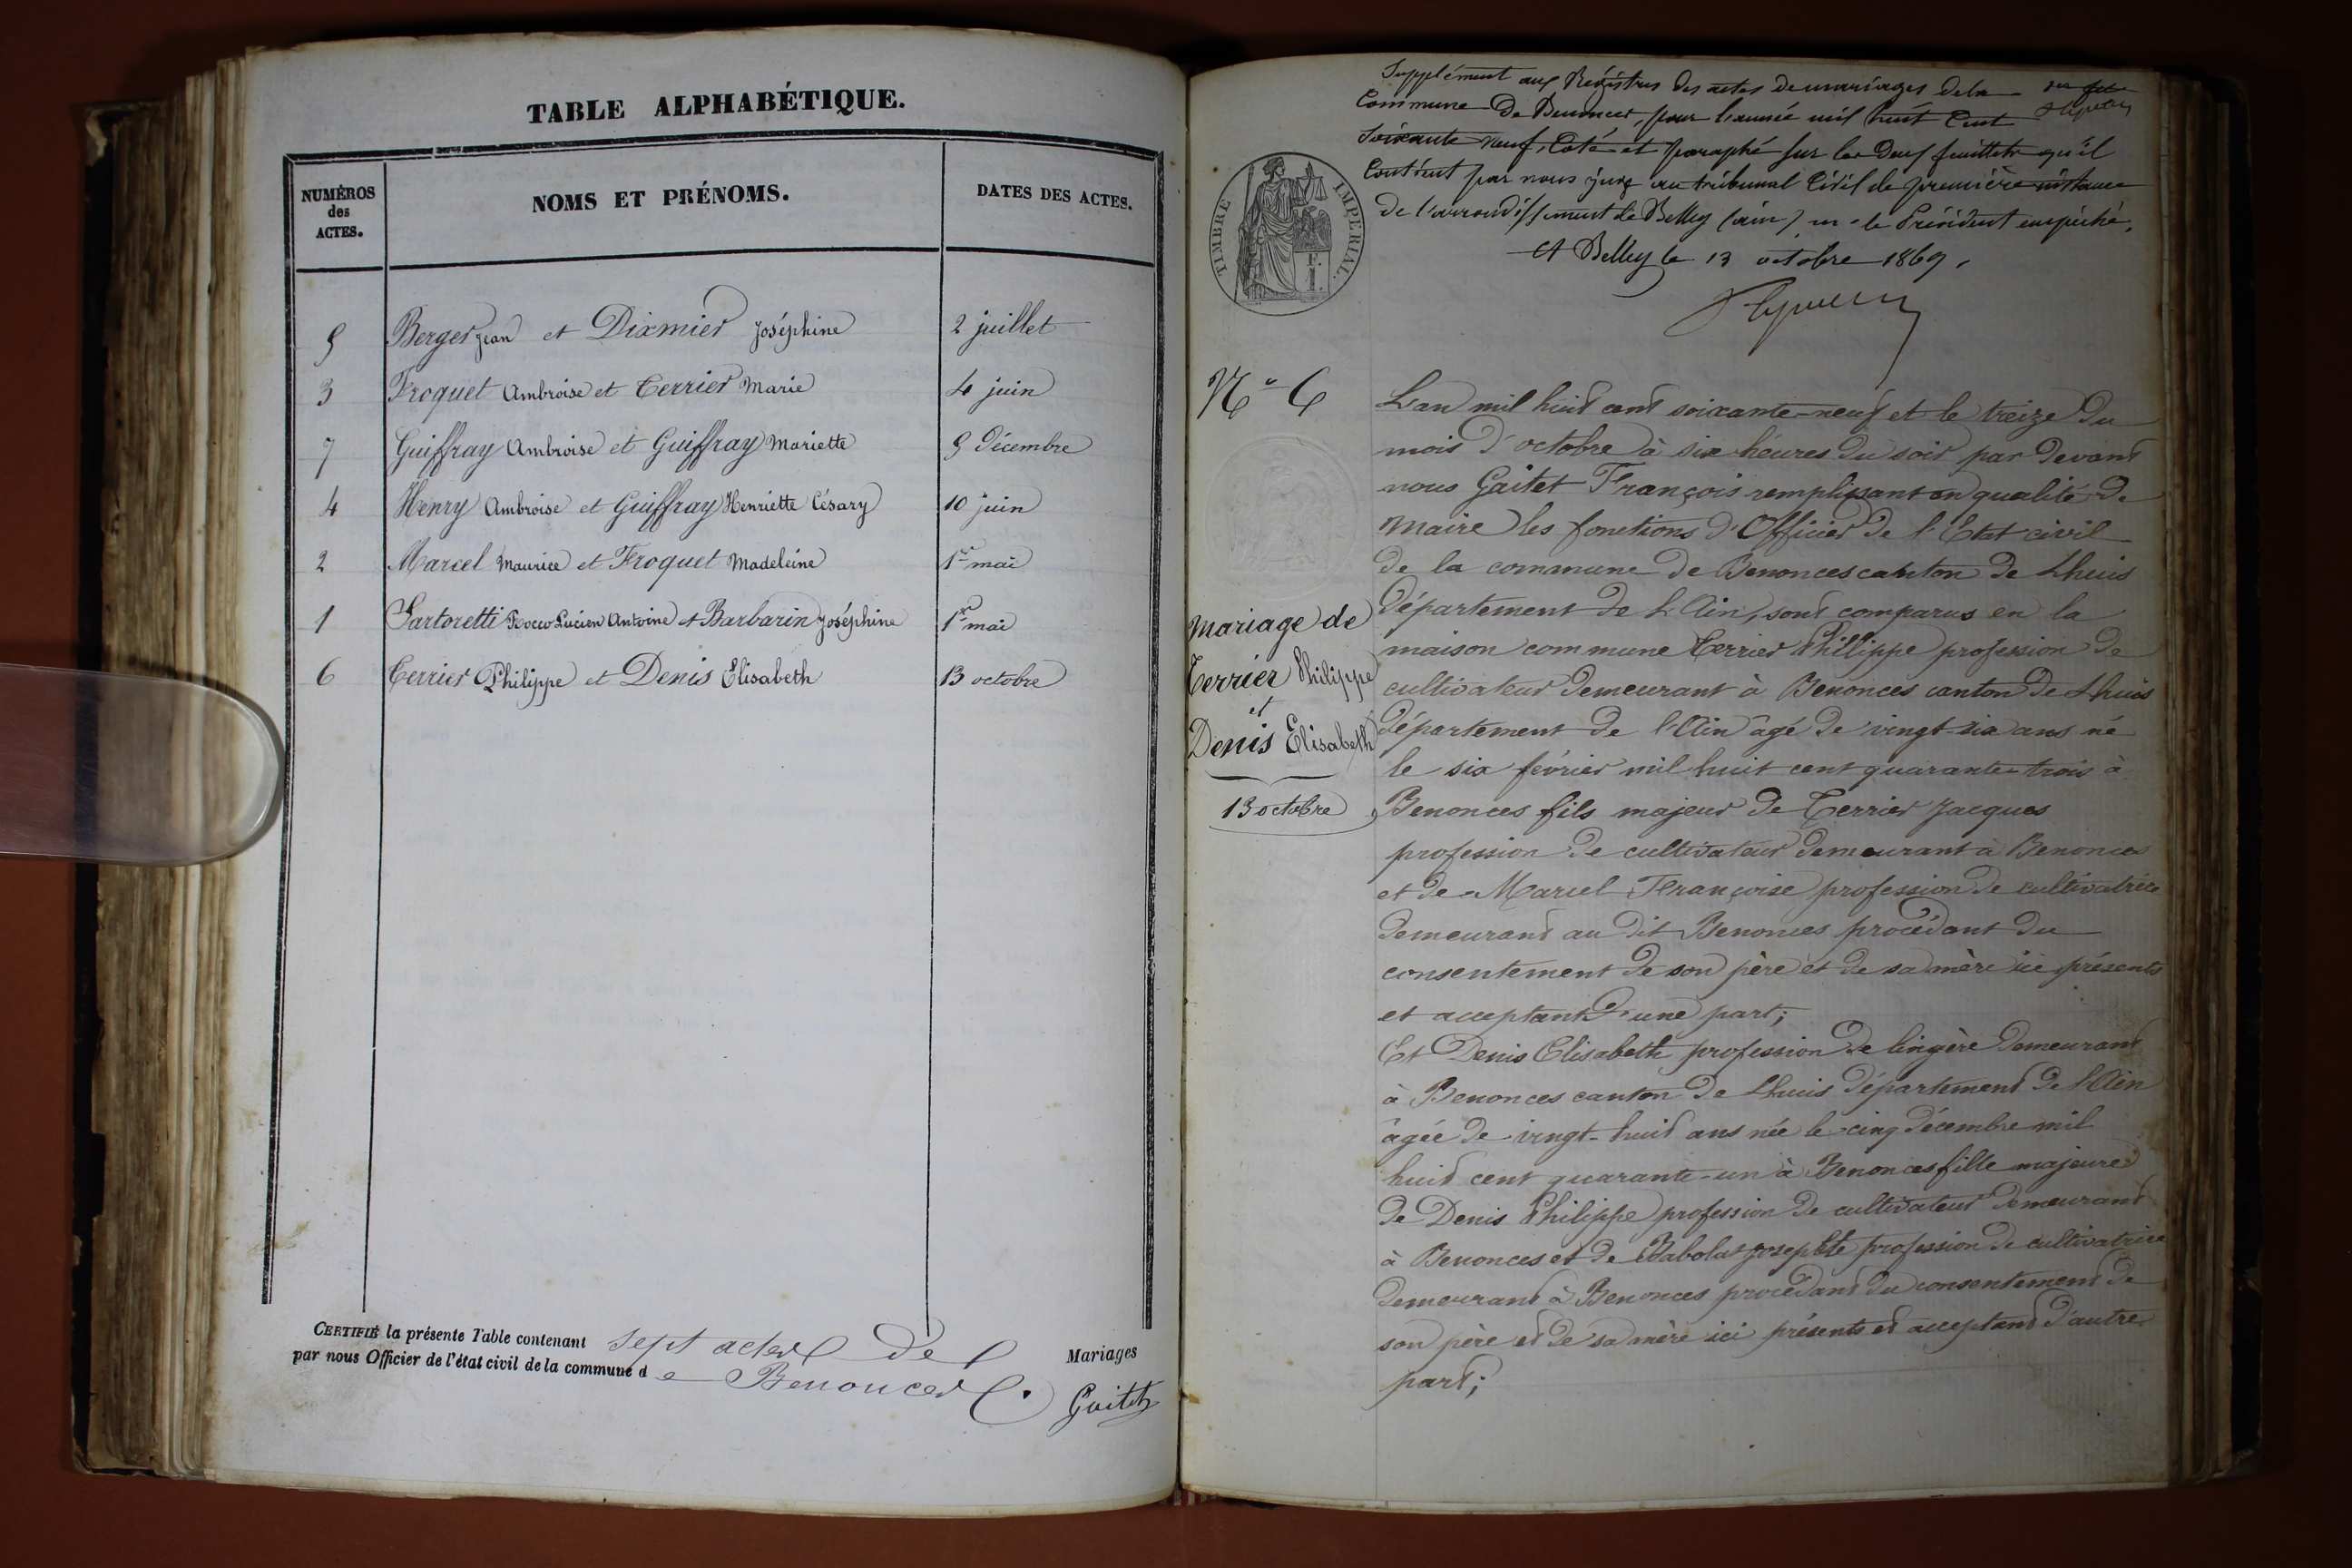 TABLE ALPHABÉTIQUE.
NUMÉROS
des
ACTES.
NOMS ET PRÉNOMS.
DATES DES ACTES.
5 Berger Jean et Dixmier Joséphine 2 juillet
3 Froquet Ambroise et Terrier Marie 4 juin
7 Guiffray Ambroise et Guiffray Mariette 9 Décembre
4 Henry Ambroise et Guiffray Henriette Césary 10 juin
2 Marcel Maurice et Froquet Madeleine 1er mai
1 Sartoretti Rocco Lucien Antoine et Barbarin Joséphine 1er mai
6 Terrier Philippe et Denis Elisabeth 13 octobre
CERTIFIÉ la présente Table contenant sept actes de Mariages
par nous Officier de l'état civil de la commune de Benonces.
Gaitet
Supplément aux Régistres des actes de mariages de la
Commune de Benonces, pour l'année mil huit Cent
Soixante neuf, Coté et paraphé sur les deux feuillets qu'il
Contient par nous juge au tribunal Civil de première instance
de l'arrondissement de Belley (ain), m. le Président empêché.
A Belley le 13 octobre 1869.
TIMBRE IMPERIAL.
N° 6
Mariage de
Terrier Philippe
et
Denis Elisabeth
13 octobre
L'an mil huit cent soixante-neuf et le treize du
mois d'octobre à six heures du soir par devant
nous Gaitet François remplissant en qualité de
Maire les fonctions d'Officier de l'Etat civil
de la commune de Benonces canton de Lhuis
Département de l'Ain, sont comparus en la
maison commune Terrier Philippe profession de
cultivateur demeurant à Benonces canton de Lhuis
Département de l'Ain âgé de vingt-six ans né
le six février mil huit cent quarante-trois à
Benonces fils majeur de Terrier Jacques
profession de cultivateur demeurant à Benonces
et de Marcel Françoise profession de cultivatrice
demeurant au dit Benonces procédant du
consentement de son père et de sa mère ici présents
et acceptant d'une part;
Et Denis Elisabeth profession de lingère demeurant
à Benonces canton de Lhuis département de l'Ain
âgée de vingt-huit ans née le cinq décembre mil
huit cent quarante-un à Benonces fille majeure
de Denis Philippe profession de cultivateur demeurant
à Benonces et de Babolat Josephte profession de cultivatrice
demeurant à Benonces procédant du consentement de
son père et de sa mère ici présents et acceptant d'autre
part;